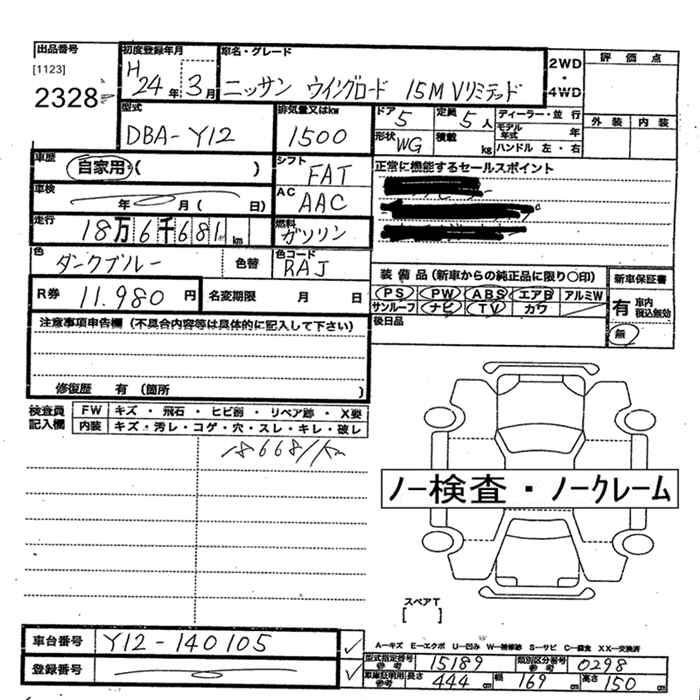 出品番号 初度登録年月 車名・グレード 評価点
[1123] H 24年 3月 ニッサン ウイングロード 15M Vリミテッド 2WD・4WD
2328 外装 内装
型式 排気量又はkw ドア 5 定員 5人 ディーラー・並行
DBA-Y12 1500 形状 WG 積載 kg モデル年式 年
ハンドル 左・右
車歴 自家用・( ) シフト FAT 正常に機能するセールスポイント
車検 年 月 ( 日) AC AAC
走行 18万6千681km 燃料 ガソリン
色 ダークブルー 色替 色コード RAJ
装備品(新車からの純正品に限り○印) 新車保証書
R券 11.980円 名変期限 月 日
PS PW ABS エアB アルミW 有 車内税込無効
サンルーフ ナビ TV カワ 無
注意事項申告欄(不具合内容等は具体的に記入して下さい) 後日品
修復歴 有 (箇所 )
検査員記入欄 FW キズ・飛石・ヒビ割・リペア跡・X要
内装 キズ・汚レ・コゲ・穴・スレ・キレ・破レ
186681km
ノー検査・ノークレーム
スペアT
[ ]
車台番号 Y12-140105
A-キズ E-エクボ U-凹み W-補修跡 S-サビ C-腐食 XX-交換済
登録番号
型式指定番号 参考 15189 類別区分番号 参考 0298
車庫証明用 参考 長さ 444cm 幅 169cm 高さ 150cm